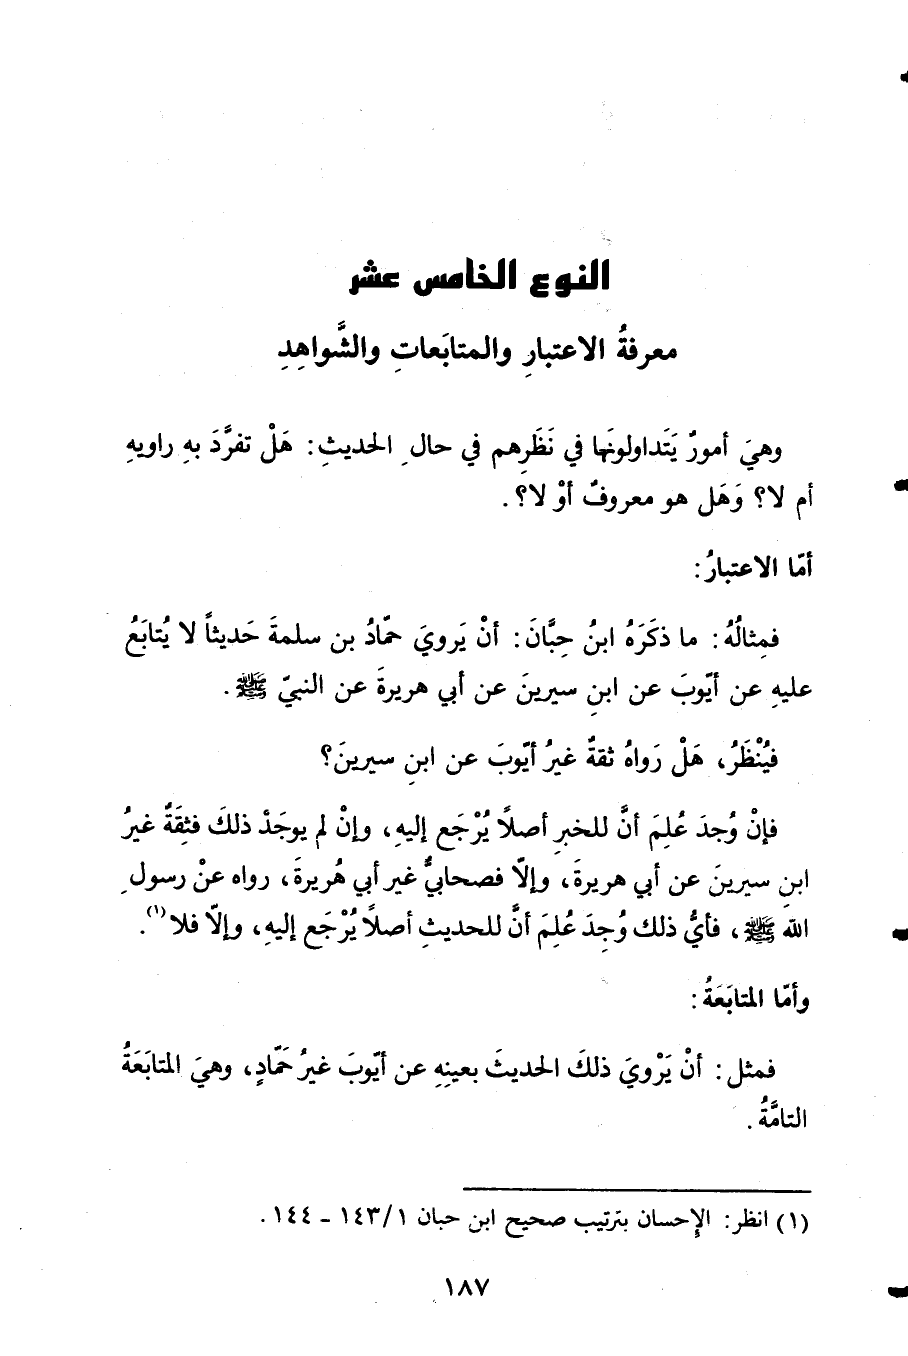 النوع الخامس عشر
معرفةُ الاعتبارِ والمتابَعاتِ والشَّواهِدِ
وهيَ أمورٌ يَتَداولونَها في نَظَرِهم في حالِ الحديثِ: هَلْ تفرَّدَ بهِ راويهِ
أم لا؟ وَهَل هو معروفٌ أوْ لا؟.
أمّا الاعتبارُ:
فمِثالُهُ: ما ذكَرَهُ ابنُ حِبَّانَ: أنْ يَرويَ حمّادُ بن سلمةَ حَديثاً لا يُتابَعُ
عليهِ عن أيّوبَ عن ابنِ سيرينَ عن أبي هريرةَ عن النبيّ ﷺ.
فيُنْظَرُ، هَلْ رَواهُ ثقةٌ غيرُ أيّوبَ عن ابنِ سيرينَ؟
فإنْ وُجدَ عُلِمَ أنَّ للخبرِ أصلًا يُرْجَع إليهِ، وإنْ لم يوجَدْ ذلكَ فثِقَةٌ غيرُ
ابنِ سيرينَ عن أبي هريرةَ، وإلّا فصحابيٌّ غير أبي هُريرةَ، رواه عنْ رسولِ
الله ﷺ، فأيُّ ذلك وُجِدَ عُلِمَ أنَّ للحديثِ أصلًا يُرْجَع إليهِ، وإلّا فلا(١).
وأمّا المتابَعَةُ:
فمثل: أنْ يَرْويَ ذلكَ الحديثَ بعينِهِ عن أيّوبَ غيرُ حَمّادٍ، وهيَ المتابَعَةُ
التامَّةُ.
(١) انظر: الإحسان بترتيب صحيح ابن حبان ١/١٤٣ - ١٤٤.
١٨٧